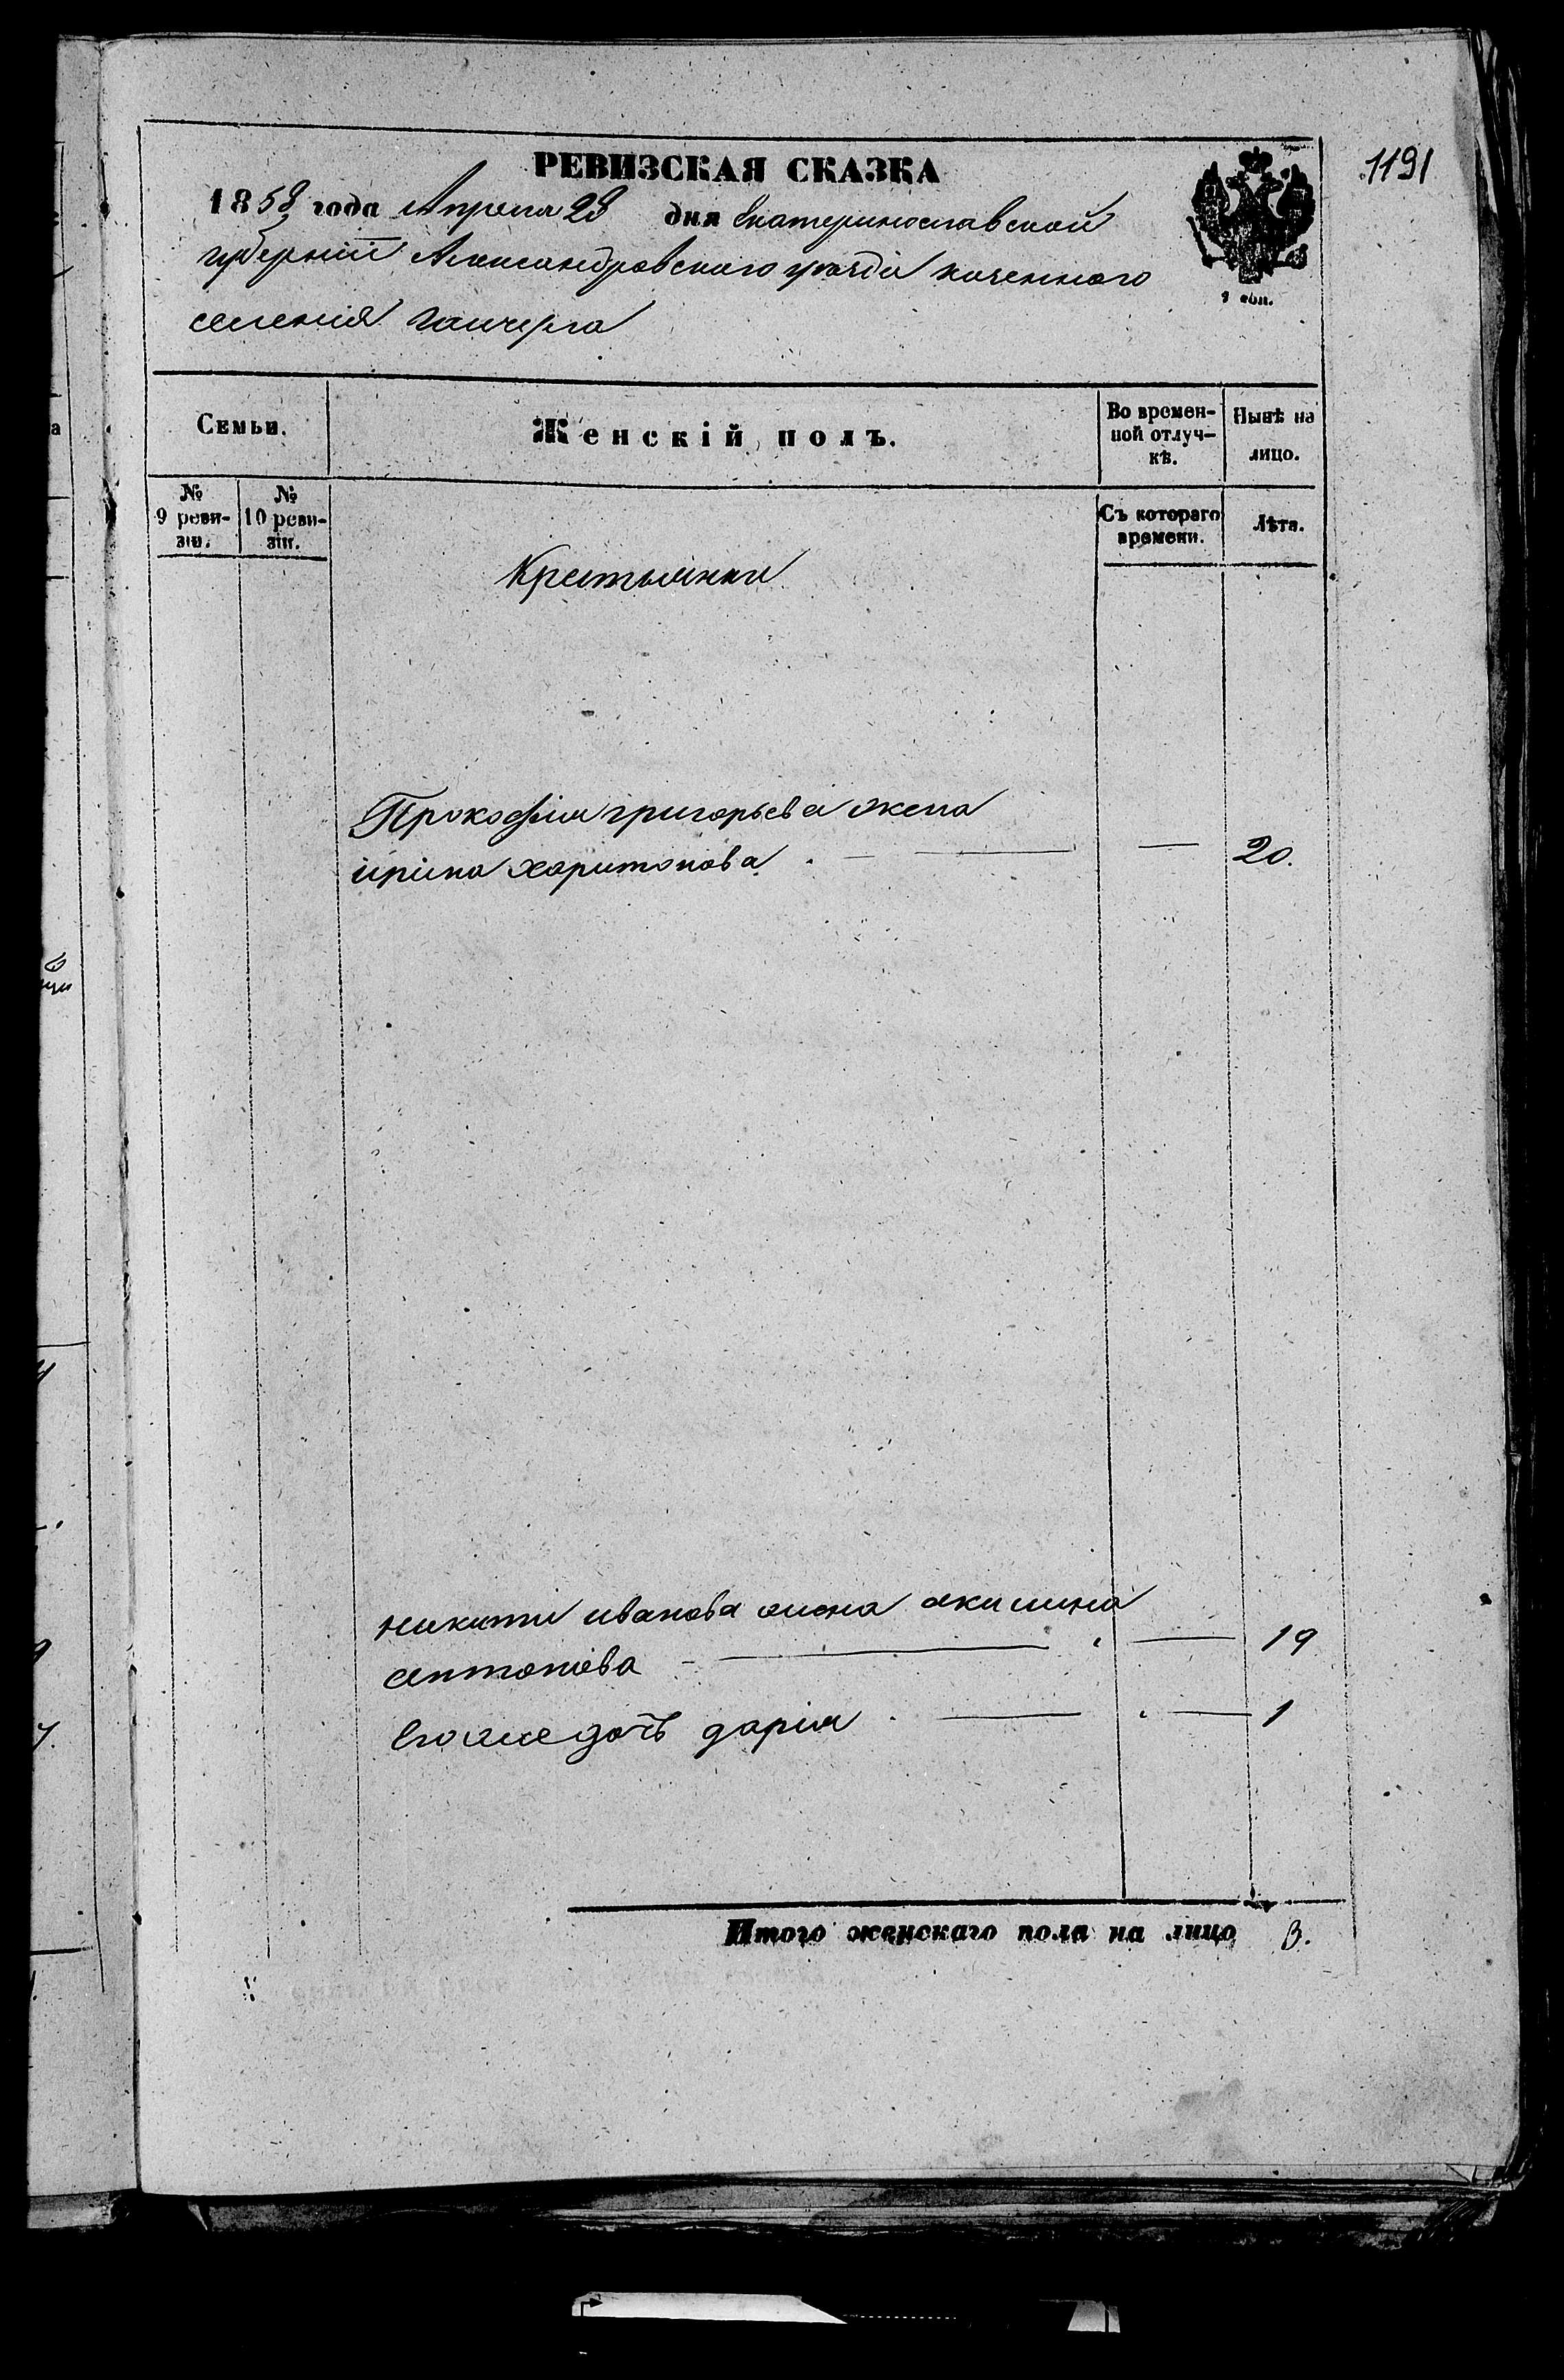 1191
РЕВИЗСКАЯ СКАЗКА
1858 года Апреля 28 дня Екатеринославской
губерніи Александровскаго уезда казенного
селенія Гайчула
Семьи.
Женскій полъ.
Во времен-
ной отлуч-
кѣ.
Нынѣ на
лицо.
№
9 реви-
зіи.
№
10 реви-
зіи.
Съ котораго
времени.
Лѣта.
Крестьянки
Прокофія григорьева жена
ирина харитонова — — 20.
никити иванова жена акилина
антонова — — 19
Его же дочь дарія — — 1
Итого женскаго пола на лицо 3.